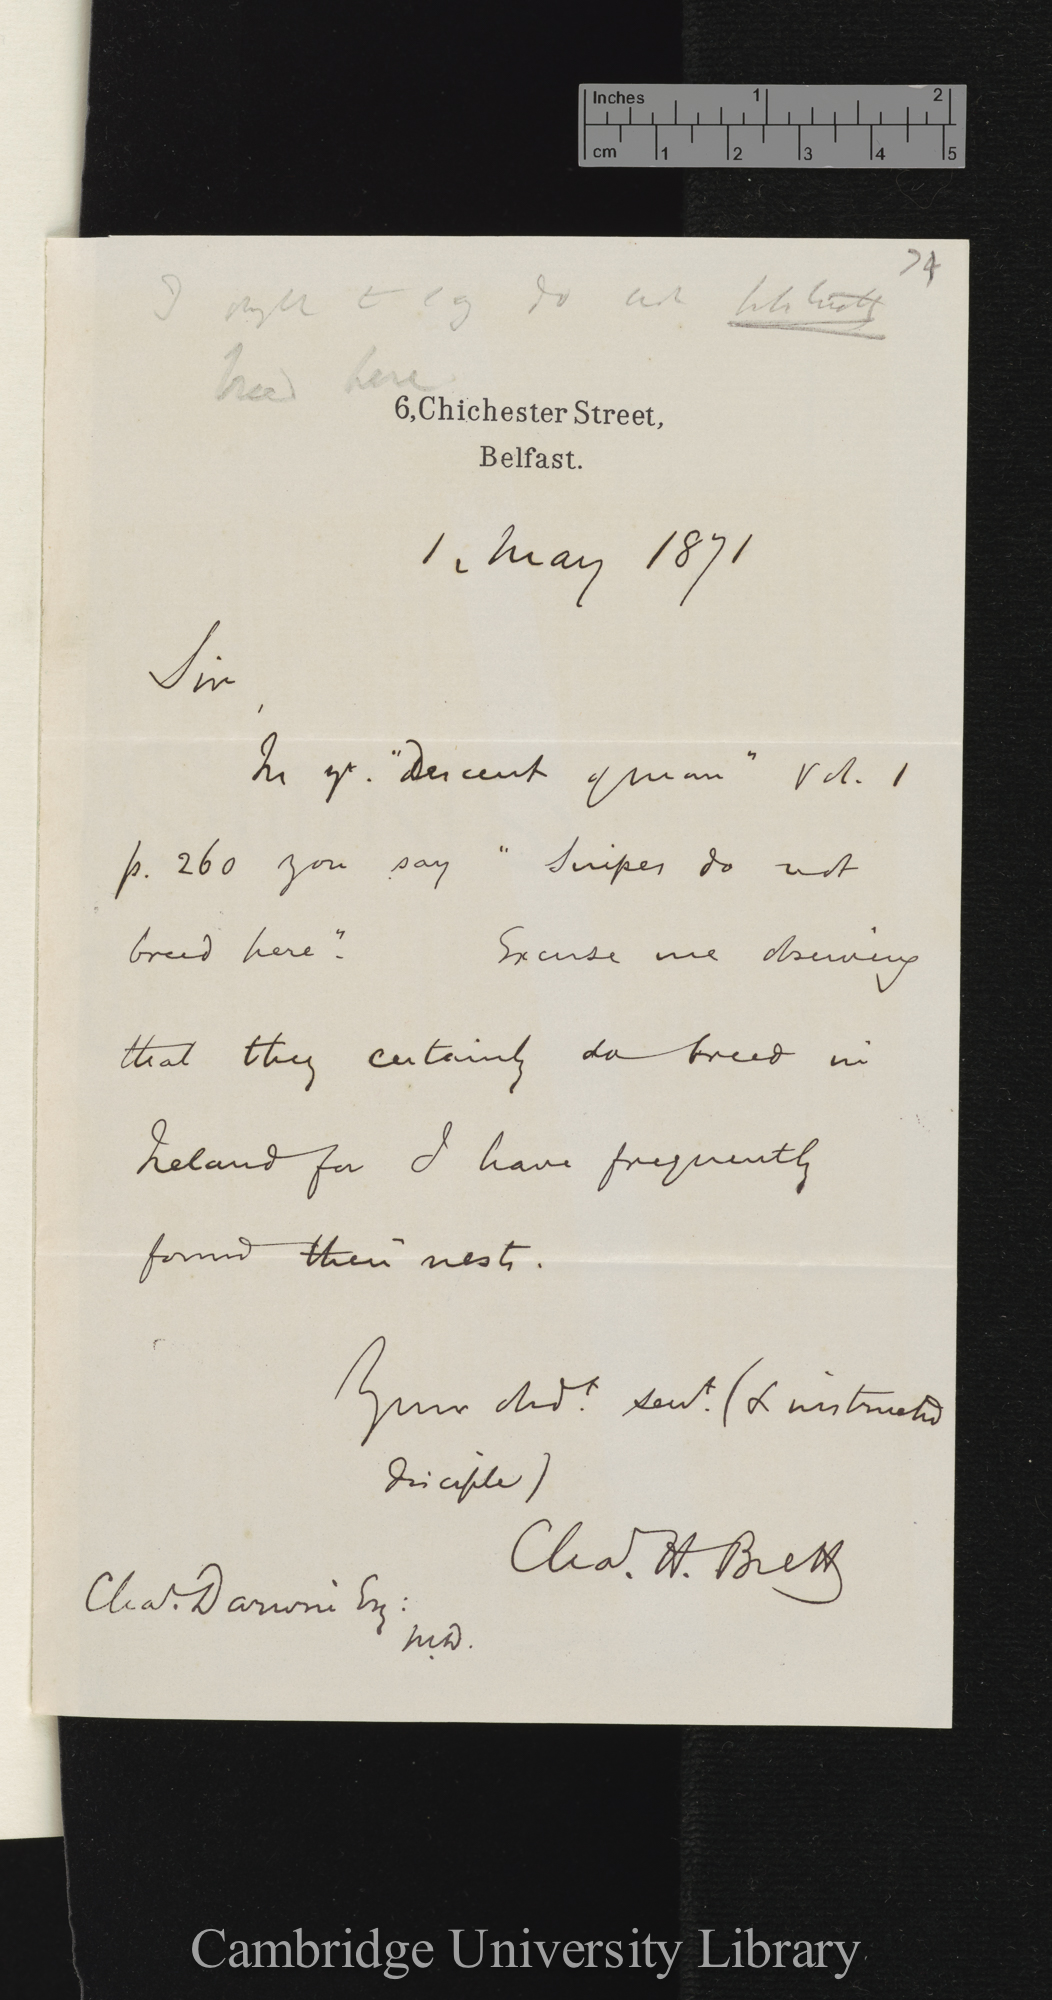 Inches 1 2
cm 1 2 3 4 5
74
I ought to say do not habitually
breed here
6, Chichester Street,
Belfast.
1, May 1871
Sir,
In yr. "Descent of man" Vol. 1
p. 260 you say "Snipes do not
breed here". Excuse me observing
that they certainly do breed in
Ireland for I have frequently
found their nests.
Your obdt. servt. (& instructed
disciple)
Chas. H. Brett
Chas. Darwin Esq:
M.D.
Cambridge University Library